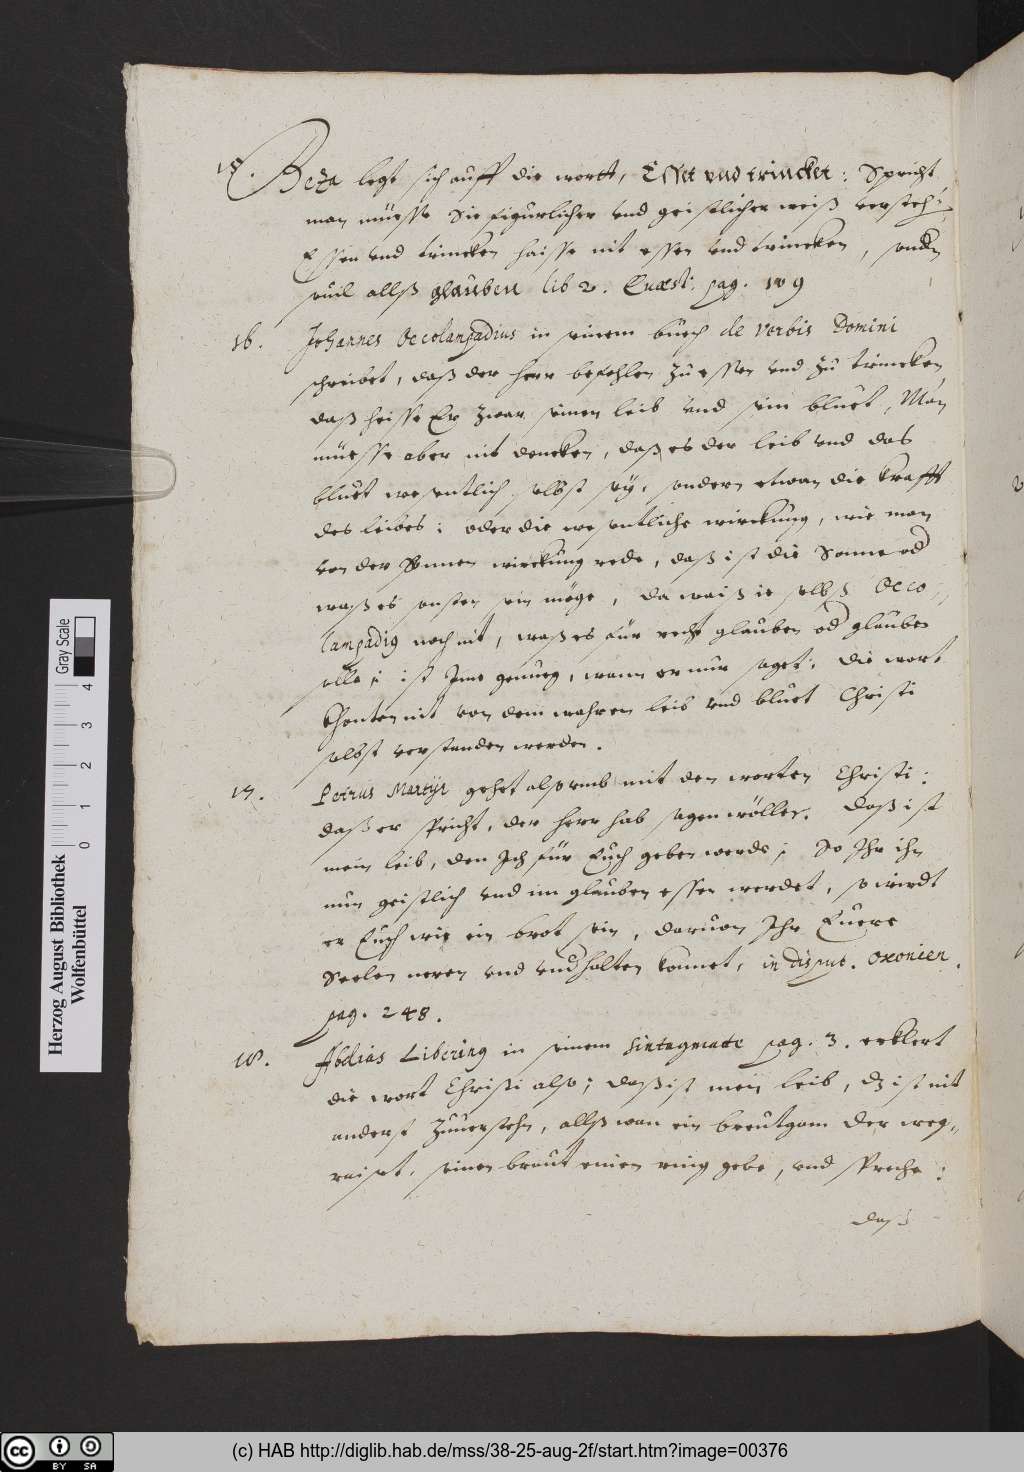 15. Beza legt sich auff die wortt, Esset vnd trincket: Spricht
man müesse Sie figurlicher vnd geistlicher weiß versteh:
Essen vnd trincken haisse nit essen vnd trincken, sondn
souil allß glauben lib 2. Quæst: pag. 109
16. Johannes Oecolampadius in seinem buech de verbis Domini
schreibet, daß der herr befohlen zu essen vnd zu trincken,
daß heisse Er zwar seinen leib vnd sein bluet, Man
müesse aber nit dencken, daß es der leib vnd das
bluet wesentlich selbst sey, sondern etwan die krafft
des leibes: oder die wesentliche wirckung, wie man
von der Sonnen wirckung rede, daß ist die Sonne od
waß es sonsten sein möge, da waiß ie selbß Oeco-
lampadig noch nit, waß es für recht glauben od glauben
solle; ist Ime genueg, wann er nur saget: die wort
khonten nit von dem wahren leib vnd bluet Christi
selbst verstanden werden.
17. Petrus Martyr gehet also vmb mit den worten Christi:
daß er spricht, der herr hab sagen wöllen. Daß ist
mein leib, den Ich für Euch geben werde; So Ihr ihn
nun geistlich vnd im glauben essen werdet, so wirdt
er Euch wie ein brot sein, daruon Ihr Euere
Seelen neren vnd vndhalten konnet, in disput. Oxonien.
pag. 248.
18. Abdias Libering in seinem Sintagmate pag. 3. erklert
die wort Christi also; daß ist mein leib, dz ist nit
anderst Zuuerstehn, allß wan ein breutgam der weg-
raiset, seinen braut einen ring gebe, vnd spreche:
daß
Herzog August Bibliothek
Wolfenbüttel
Gray Scale
0 1 2 3 4
cc BY SA
(c) HAB http://diglib.hab.de/mss/38-25-aug-2f/start.htm?image=00376